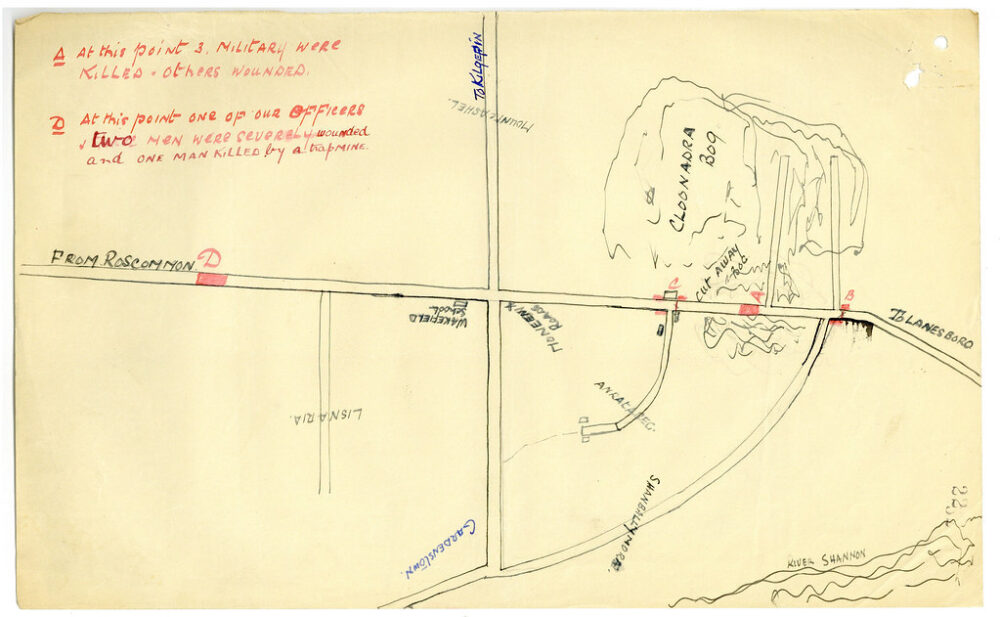 A At this point 3. Military were
Killed - others wounded.
D At this point one of our Officers
, two men were severely wounded
and one man killed by a trapmine.
To Kilgefin
Mountcashel.
Cloonadra
Bog
Cut away
Bog
From Roscommon.
D
C
A
B
To Lanesboro
Wakefield
School.
Moneen X
Roads
Lisnaria.
Shanballymore.
Gardenstown.
River Shannon